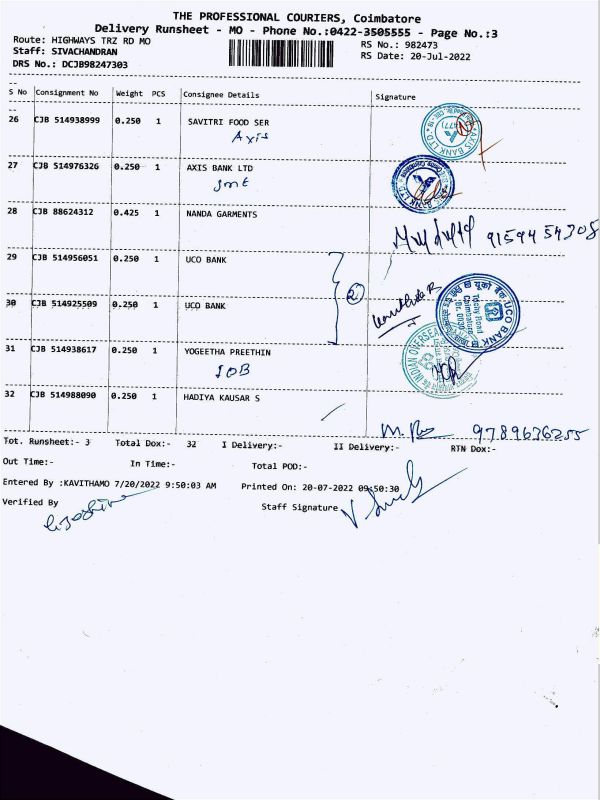 THE PROFESSIONAL COURIERS, Coimbatore
Delivery Runsheet - MO - Phone No.:0422-3505555 - Page No.:3
Route: HIGHWAYS TRZ RD MO
RS No.: 982473
Staff: SIVACHANDRAN
RS Date: 20-Jul-2022
DRS No.: DCJB98247303
S No Consignment No Weight PCS Consignee Details Signature
26 CJB 514938999 0.250 1 SAVITRI FOOD SER
Axis
AXIS BANK LTD
27 CJB 514976326 0.250 1 AXIS BANK LTD
AXIS BANK LTD
28 CJB 88624312 0.425 1 NANDA GARMENTS
9159454308
29 CJB 514956051 0.250 1 UCO BANK
2
30 CJB 514925509 0.250 1 UCO BANK
यूको बैंक UCO BANK
Trichy Road
Coimbatore
INDIAN OVERSEA
31 CJB 514938617 0.250 1 YOGEETHA PREETHIN
IOB
32 CJB 514988090 0.250 1 HADIYA KAUSAR S
9789636255
Tot. Runsheet:- 3 Total Dox:- 32 I Delivery:- II Delivery:- RTN Dox:-
Out Time:- In Time:- Total POD:-
Entered By :KAVITHAMO 7/20/2022 9:50:03 AM Printed On: 20-07-2022 09:50:30
Verified By
Staff Signature